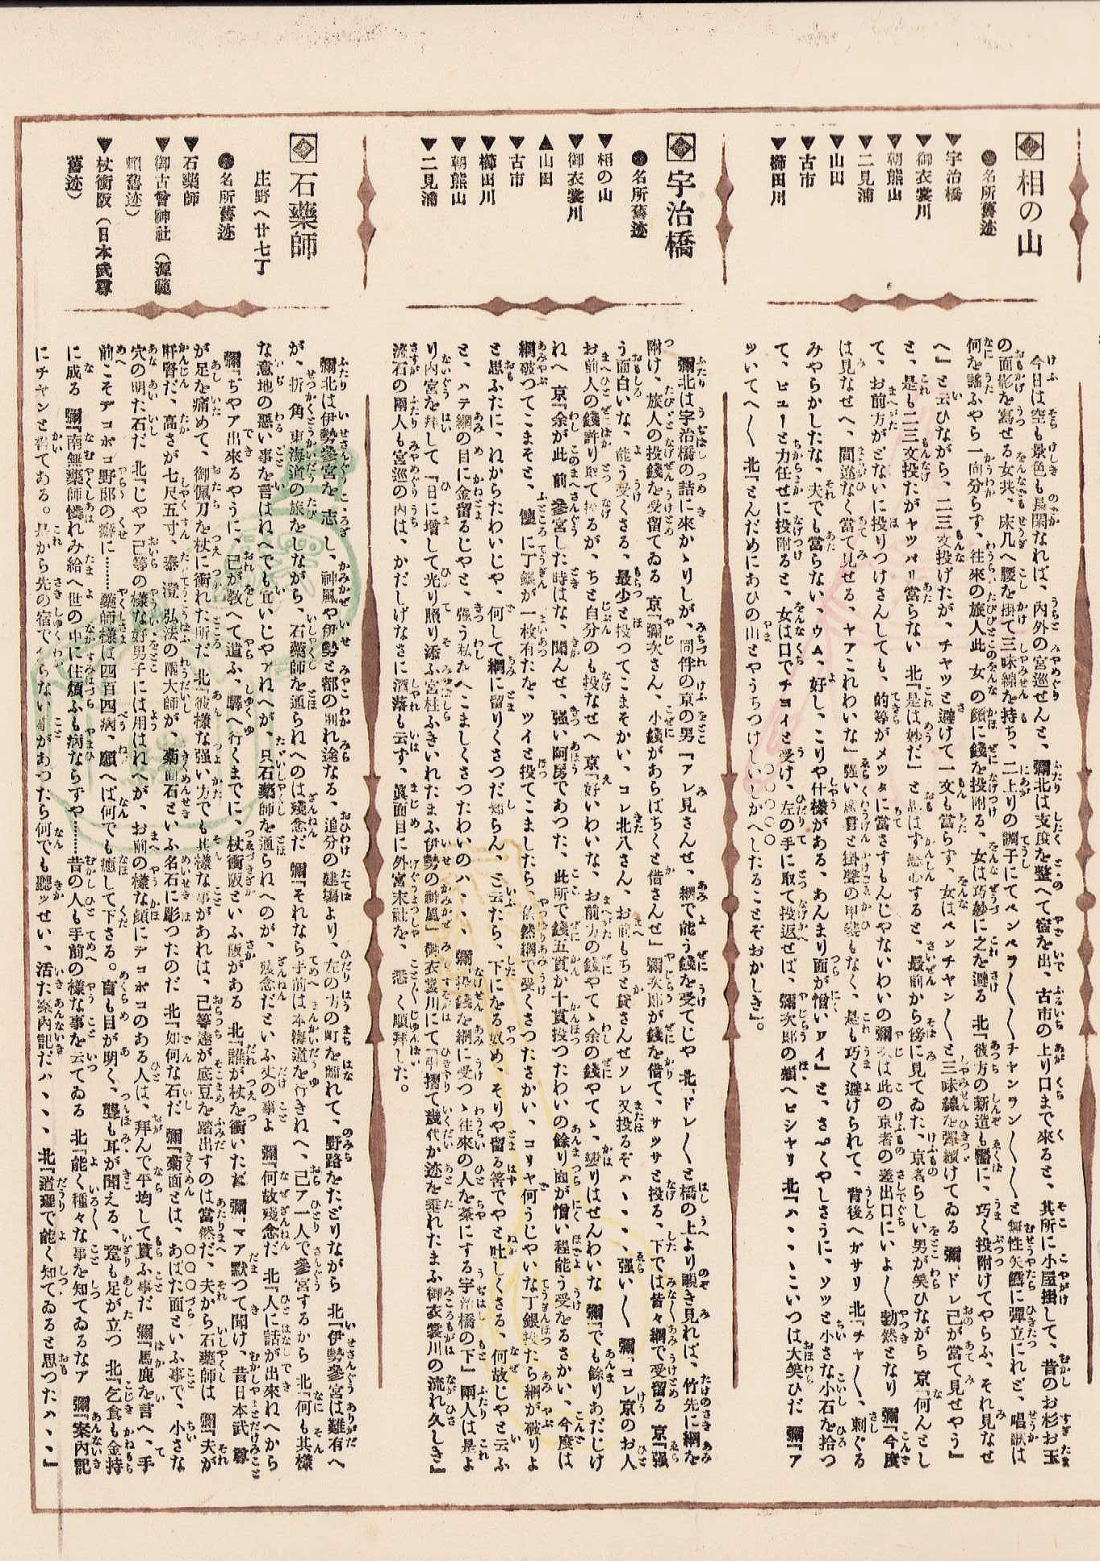 相の山
●名所舊迹
▼宇治橋
▼御衣裳川
▼朝熊山
▼二見浦
▼山田
▼古市
▼櫛田川
今日は空も景色も長閑なれば、內外の宮巡せんと、彌北は支度を整へて宿を出、古市の上り口まで來ると、其所に小屋掛して、昔のお杉お玉
の面影を寫せる女共、床几へ腰を掛て三味線を持ち、二上りの調子にてペンペラ〳〵チャンラン〳〵〳〵と無性矢鱈に彈立にれど、唱歌は
何を謠ふやら一向分らず、往來の旅人此女の顏に錢を投附る、女は巧妙に之を避る 北『彼方の新造も豔に、巧く投附けてやらふ、それ見なせ
へ』と云ひながら、二三文投げたが、チャッと避けて一文も當らず、女はペンチャン〳〵〳〵と三味線を彈續けてゐる 彌『ドレ己が當て見せやう』
と、是も二三文投たがヤッパリ當らない 北『是は妙だ』と
て、お前方がどないに投りつけさんしても、的等がメッタに當さすもんじやないわいの
は見なせへ、間違なく當て見せる、ヤアこれわいな』
みやらかしたな、夫でも當らない、ウム、好し、こりや仕樣がある、あんまり面が憎いワイ』と、さも〳〵くやしさうに、ソッと小さな小石を拾つ
て、ヒューと力任に投附ると、女は口でチョイと受け、左の手に取て投返せば、彌次郎の額へピシャリ 北『ハ、、、こいつは大笑ひだ 彌『ア
ツいて〳〵 北『とんだめにあひの山とやうちつけしいしかへしたることぞおかしき』。
宇治橋
●名所舊迹
▼相の山
▼御衣裳川
▲山田
▼古市
▼櫛田川
▼朝熊山
▼二見浦
彌北は宇治橋の詰に來かゝりしが、同伴の京の男『アレ見さんせ、網で能う錢を受てじや 北『ドレ〳〵と橋の上より覗き見れば、竹先に網を
附け、旅人の投錢を受留てゐる 京『彌次さん、小錢があらばちくと借さんせ』彌次郎が錢を借て、サッサと投る、下では皆々網で受留る 京『强
う面白いな、能う受くさる、最少と投つてこまそかい、コレ北八さん、お前もちと貸さんせソレ又投るぞハ、、、强い〳〵 彌『コレ京のお人
お前人の錢許り取て投るが、ちと自分のも投なせへ 京『好いわいな、お前方の錢やてゝ余の錢やてゝ、變りはせんわいな 彌『でも餘りあたじけ
ねへ 京『余が此前參宮した時はな、聞んせ、强い阿房であつた、此所で錢五貫か十貫投つたわいの餘り面が憎い程能う受をるさかい、今度は
網破つてこまそと、懷に丁銀が一枚有たを、ツイと投てこましたら、依然網で受くさつたさかい、コリャ何うじやいな丁銀投たら網が破りよ
と思ふたに、れからたわいじや、何して網に留りくさつだ知らん、と云たら、下になる奴め、そりや留る筈でやと吐しくさる、何故じやと云ふ
と、ハテ網の目に金留るじやと、强う私れへこましくさつたわいのハ、、、 彌『投錢を網に受つゝ往來の人を茶にする宇治橋の下』兩人は是よ
り內宮を拜して『日に增して光り照り添ふ宮柱ふきいれたまふ伊勢の神風』御衣裳川にて『引摺て幾代か迹を垂れたまふ御衣裳川の流れ久しき』
流石の兩人も宮巡の內は、かだしげなさに洒落も云ず、眞面目に外宮末社を、悉く順拜した。
石藥師
庄野へ廿七丁
●名所舊迹
▼石藥師
▼御古曾神社（源範
賴舊迹）
▼杖衝阪（日本武尊
舊迹）
彌北は伊勢參宮を志し、神風や伊勢と都の別れ途なる、追分の建場より、左の方の町を離れて、野路をたどりながら 北『伊勢參宮は難有へ
が、折角東海道の旅をしながら、石藥師を通られへのは殘念だ 彌『それなら手前は本海道を行きねへ、己ア一人で參宮するから 北『何も其樣
な意地の惡い事を言はねへでも宜いじやァれへが、只石藥師を通られへのが、殘念だといふ丈の事よ 彌『何故殘念だ 北『人に話が出來れへから
彌『ちやア出來るやうに、己が敎へて遣ふ、驛へ行くまでに、杖衝阪といふ阪がある 北『誰が杖を衝いた 彌『マア默つて聞け、昔日本武尊
が足を痛めて、御佩刀を杖に衝れた所だ 北『彼樣な强い方でも其樣な事があれは、己等達が底豆を踏出すのは當然だ、夫から石藥師は 彌『夫が
肝腎だ、高さが七尺五寸、泰澄弘法の兩大師が、菊面石といふ名石に彫つたのだ 北『如何な石だ 彌『菊面とは、あばた面といふ事で、小さな
穴の明た石だ 北『じやア己等の樣な好男子には用はねへが、お前の樣な顏にデコボコのある人は、拜んで平均して貰ふ事だ 彌『馬鹿を言へ、手
前こそデコボコ野郎の癖に……藥師樣は四百四病、願へば何でも癒して下さる。盲も目が明く、聾も耳が聞える、蹇も足が立つ 北『乞食も金持
に成る 彌『南無藥師憐れみ給へ世の中に住煩ふも病ならずや……昔の人も手前の樣な事を云てゐる 北『能く種々な事を知てゐるなア 彌『案內記
にチャンと書てある。是から先の宿で分らない事があつたら何でも聽ッせい、活た案內記だハ、、、、 北『道理で能く知てゐると思つたハ、、』